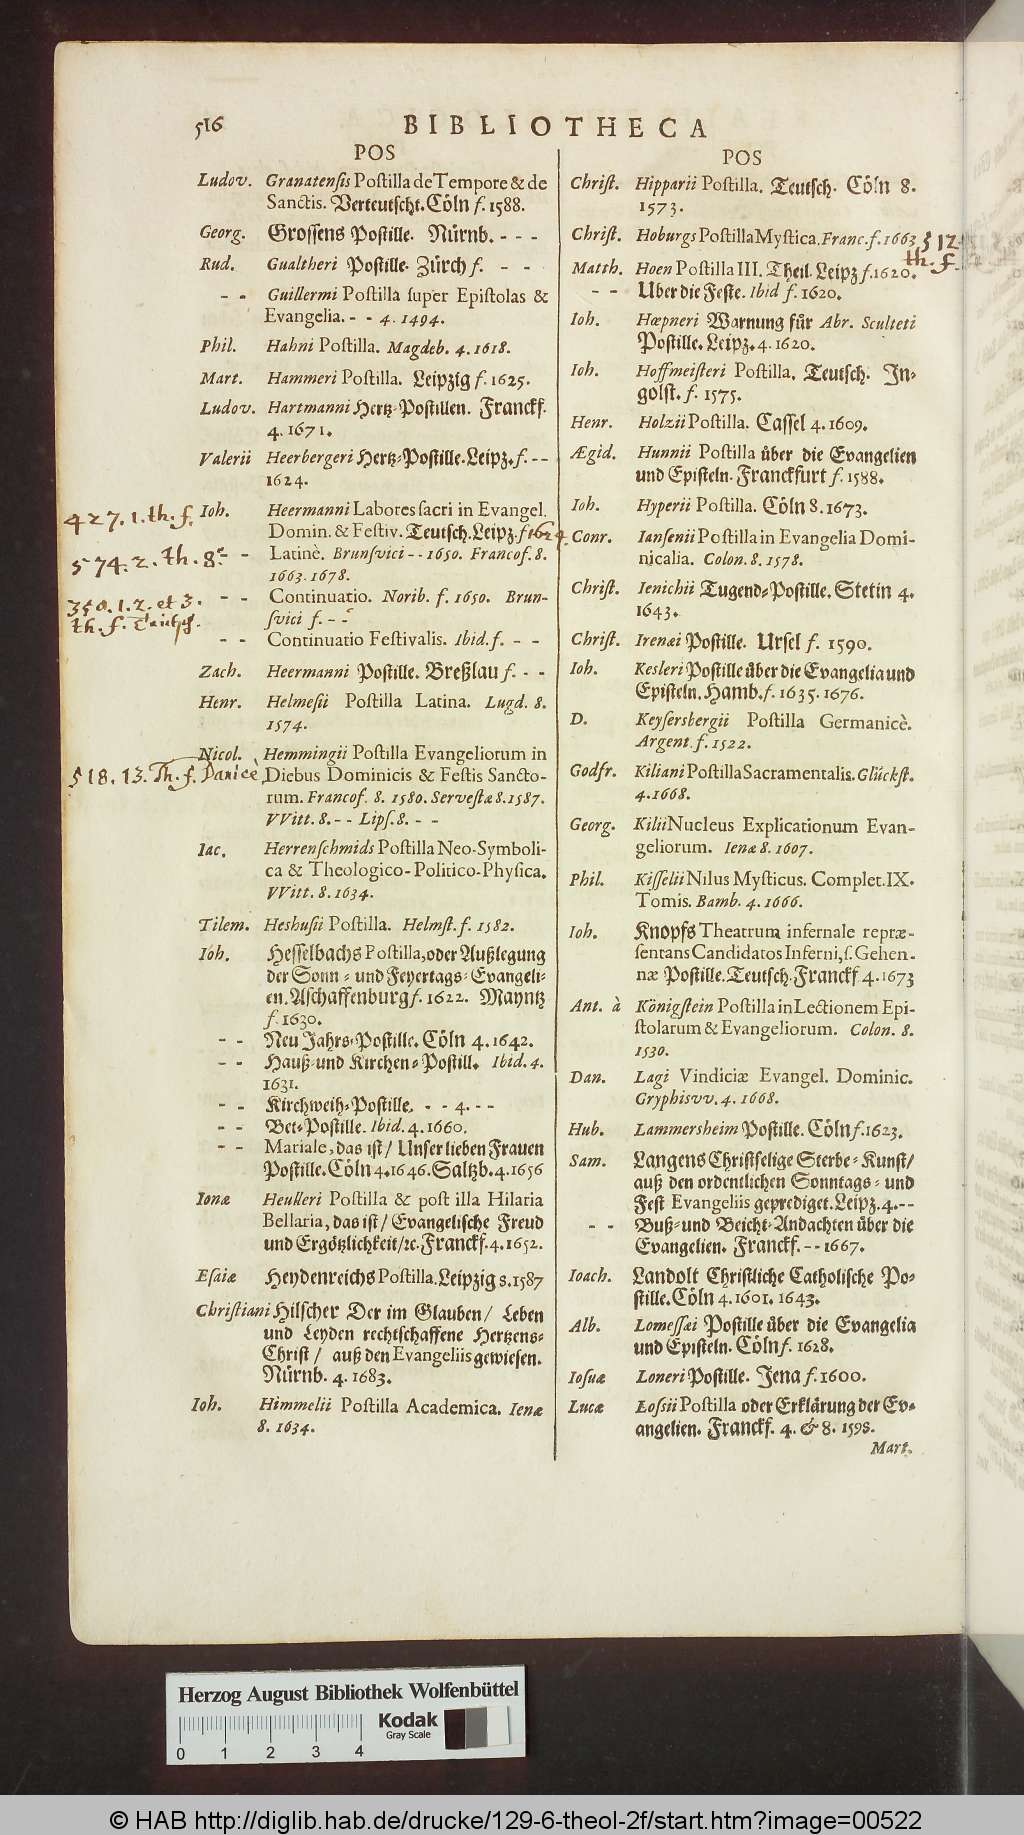 516 BIBLIOTHECA
POS
Ludov. Granatensis Postilla de Tempore & de
Sanctis. Verteutscht. Cöln f. 1588.
Georg. Grossens Postille. Nürnb. - - -
Rud. Gualtheri Postille. Zürch f. - -
- - Guillermi Postilla super Epistolas &
Evangelia. - - 4. 1494.
Phil. Hahni Postilla. Magdeb. 4. 1618.
Mart. Hammeri Postilla. Leipzig f. 1625.
Ludov. Hartmanni Hertz-Postillen. Franckf.
4. 1671.
Valerii Heerbergeri Hertz-Postille. Leipz. f. - -
1624.
427. 1. th. f. Ioh. Heermanni Labores sacri in Evangel.
Domin. & Festiv. Teutsch. Leipz. f 1624.
574. 2. th. 8º - - Latinè. Brunsvici - - 1650. Francof. 8.
1663. 1678.
350. 1. 2. et 3. - - Continuatio. Norib. f. 1650. Brun-
th. f. Teutsch. svici f. - -
- - Continuatio Festivalis. Ibid. f. - -
Zach. Heermanni Postille. Breßlau f. - -
Henr. Helmesii Postilla Latina. Lugd. 8.
1574.
Nicol. Hemmingii Postilla Evangeliorum in
518. 13. Th. f. Danicè. Diebus Dominicis & Festis Sancto-
rum. Francof. 8. 1580. Servestæ 8. 1587.
VVitt. 8. - - Lips. 8. - -
Iac. Herrenschmids Postilla Neo-Symboli-
ca & Theologico-Politico-Physica.
VVitt. 8. 1634.
Tilem. Heshusii Postilla. Helmst. f. 1582.
Ioh. Hesselbachs Postilla, oder Außlegung
der Sonn- und Feyertags-Evangeli-
en. Aschaffenburg f. 1622. Mayntz
f. 1630.
- - Neu Jahrs-Postille. Cöln 4. 1642.
- - Hauß- und Kirchen-Postill. Ibid. 4.
1631.
- - Kirchweih-Postille. - - 4. - -
- - Bet-Postille. Ibid. 4. 1660.
- - Mariale, das ist / Unser lieben Frauen
Postille. Cöln 4. 1646. Saltzb. 4. 1656
Ionæ Heulleri Postilla & post illa Hilaria
Bellaria, das ist / Evangelische Freud
und Ergötzlichkeit / ꝛc. Franckf. 4. 1652.
Esaiæ Heydenreichs Postilla. Leipzig 8. 1587
Christiani Hilscher Der im Glauben / Leben
und Leyden rechtschaffene Hertzens-
Christ / auß den Evangeliis gewiesen.
Nürnb. 4. 1683.
Ioh. Himmelii Postilla Academica. Ienæ
8. 1634.
POS
Christ. Hipparii Postilla. Teutsch. Cöln 8.
1573.
Christ. Hoburgs Postilla Mystica. Franc. f. 1663 512
th. f.
Matth. Hoen Postilla III. Theil. Leipz f. 1620.
- - Uber die Feste. Ibid f. 1620.
Ioh. Hœpneri Warnung für Abr. Sculteti
Postille. Leipz. 4. 1620.
Ioh. Hoffmeisteri Postilla. Teutsch. In-
golst. f. 1575.
Henr. Holzii Postilla. Cassel 4. 1609.
Ægid. Hunnii Postilla über die Evangelien
und Episteln. Franckfurt f. 1588.
Ioh. Hyperii Postilla. Cöln 8. 1673.
Conr. Iansenii Postilla in Evangelia Domi-
nicalia. Colon. 8. 1578.
Christ. Ienichii Tugend-Postille. Stetin 4.
1643.
Christ. Irenæi Postille. Ursel f. 1590.
Ioh. Kesleri Postille über die Evangelia und
Episteln. Hamb. f. 1635. 1676.
D. Keysersbergii Postilla Germanicè.
Argent. f. 1522.
Godfr. Kiliani Postilla Sacramentalis. Glückst.
4. 1668.
Georg. Kilii Nucleus Explicationum Evan-
geliorum. Ienæ 8. 1607.
Phil. Kisselii Nilus Mysticus. Complet. IX.
Tomis. Bamb. 4. 1666.
Ioh. Knopfs Theatrum infernale repræ-
sentans Candidatos Inferni, s. Gehen-
næ Postille. Teutsch. Franckf 4. 1673
Ant. à Königstein Postilla in Lectionem Epi-
stolarum & Evangeliorum. Colon. 8.
1530.
Dan. Lagi Vindiciæ Evangel. Dominic.
Gryphisvv. 4. 1668.
Hub. Lammersheim Postille. Cöln f. 1623.
Sam. Langens Christselige Sterbe-Kunst /
auß den ordentlichen Sonntags- und
Fest Evangeliis geprediget. Leipz. 4. - -
- - Buß- und Beicht-Andachten über die
Evangelien. Franckf. - - 1667.
Ioach. Landolt Christliche Catholische Po-
stille. Cöln 4. 1601. 1643.
Alb. Lomessæi Postille über die Evangelia
und Episteln. Cöln f. 1628.
Iosuæ Loneri Postille. Jena f. 1600.
Lucæ Lossii Postilla oder Erklärung der Ev-
angelien. Franckf. 4. & 8. 1598.
Mart.
Herzog August Bibliothek Wolfenbüttel
Kodak
Gray Scale
0 1 2 3 4
© HAB http://diglib.hab.de/drucke/129-6-theol-2f/start.htm?image=00522